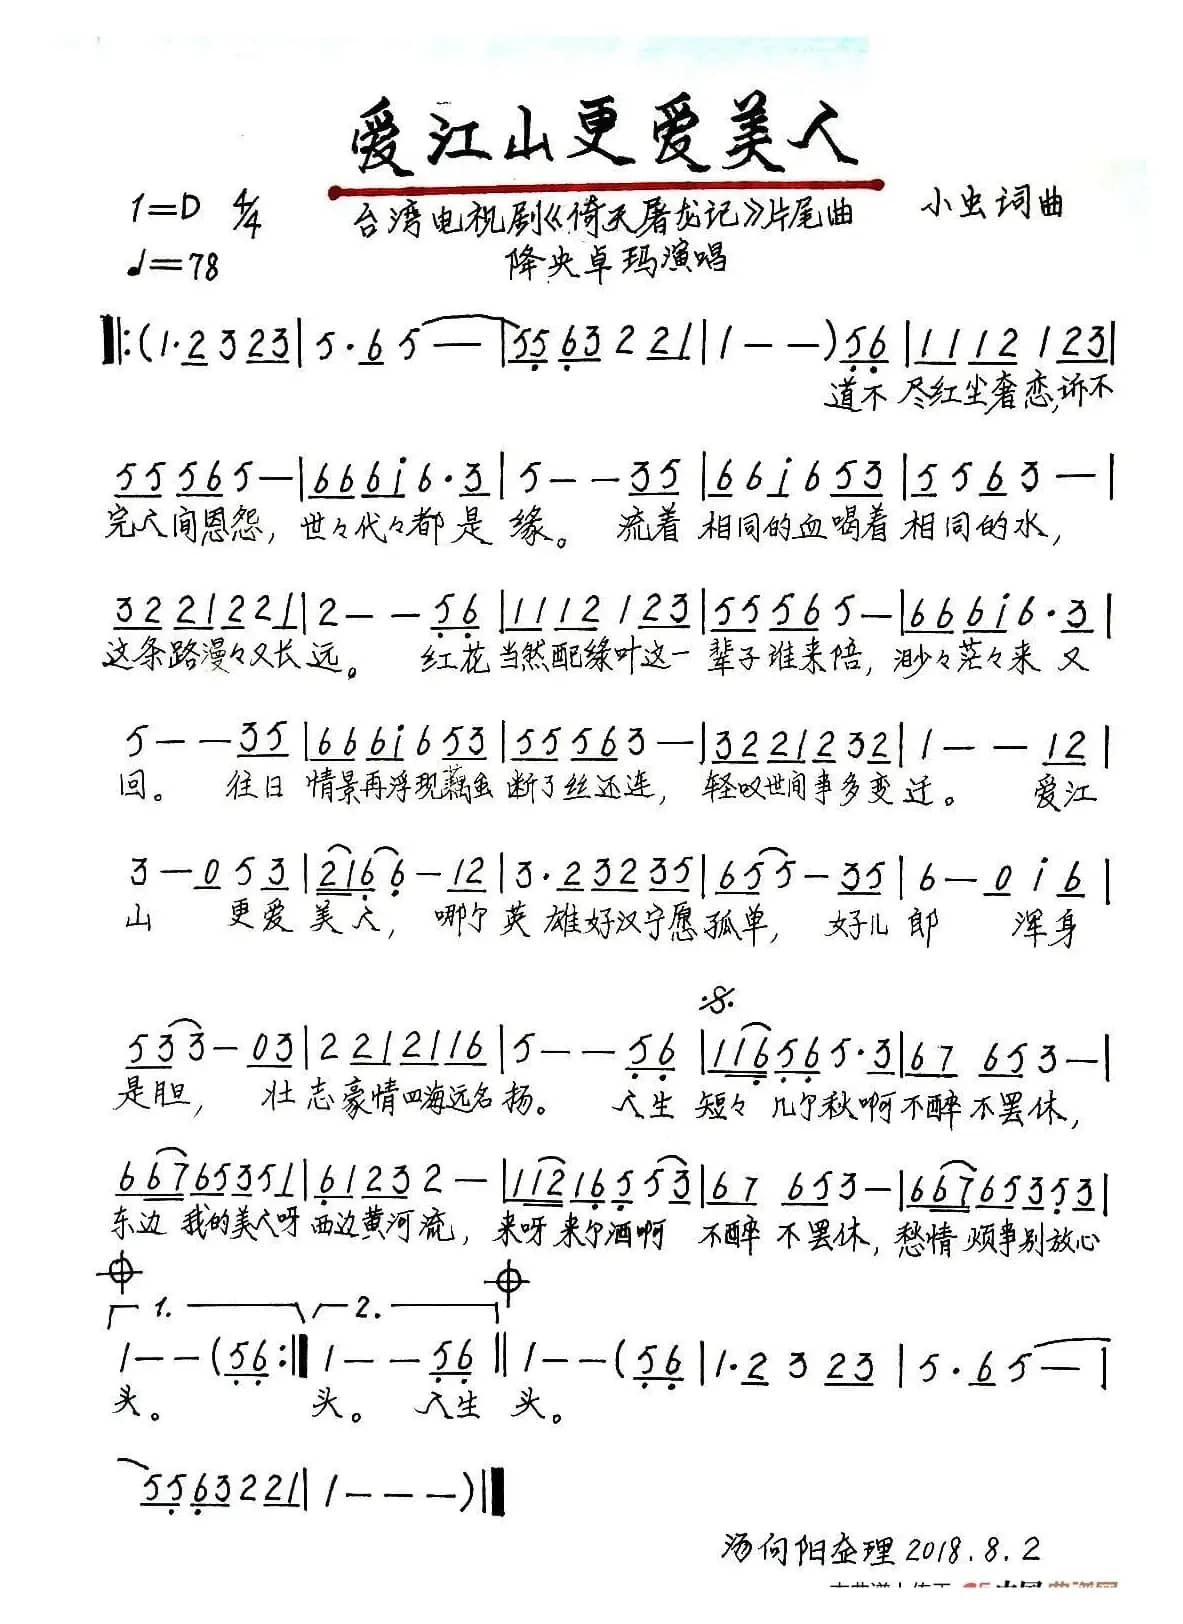 爱江山更爱美人
1=D 4/4 台湾电视剧《倚天屠龙记》片尾曲 小虫词曲
♩=78 降央卓玛演唱
‖:(1·2 3 23|5·6 5 —|55 63 2 21|1 — —)56|11 12 1 23|
道不 尽红尘奢恋,诉不
55 56 5 —|66 6i 6·3|5 — — 35|66 i6 53|55 63 —|
完人间恩怨, 世々代々都是 缘。 流着 相同的血喝着 相同的水,
32 21 22 1|2 — — 56|11 12 1 23|55 56 5 —|66 6i 6·3|
这条路漫々又长远。 红花 当然配绿叶这一 辈子谁来陪, 渺々茫々来 又
5 — — 35|66 6i 6 53|55 56 3 —|32 21 2 32|1 — — 12|
回。 往日 情景再浮现藕虽 断了丝还连, 轻叹世间事多变迁。 爱江
3 — 0 5 3|2166 — 12|3·2 32 35|65 5 — 35|6 — 0 i 6|
山 更爱 美人, 哪个英 雄好汉宁愿孤单, 好儿郎 浑身
53 3 — 03|2 21 21 16|5 — — 56|116 56 5·3|67 653 —|
是胆, 壮 志豪情四海远名扬。 人生 短々 几个秋啊不醉不罢休,
667 65 35 1|61 23 2 —|112 16 55 3|67 653 —|667 65 35 3|
东边 我的美人呀 西边黄河流, 来呀来个酒啊 不醉 不罢休, 愁情 烦事别放心
1. 2.
1 — —(56:‖1 — — 56‖1 — —(56|1·2 3 23|5·6 5 —|
头。 头。 人生 头。
55 63 2 21|1 — — —)‖
汤向阳整理 2018.8.2